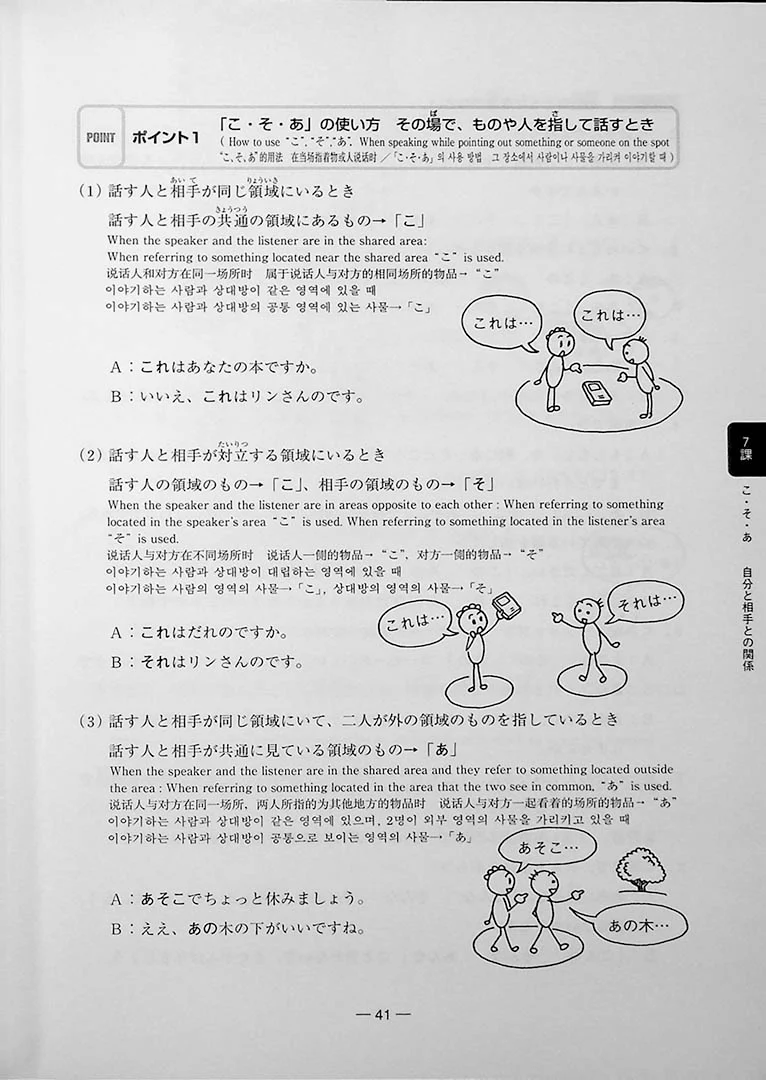 POINT
ポイント1
「こ・そ・あ」の使い方　その場で、ものや人を指して話すとき
( How to use “こ”, “そ”, “あ”. When speaking while pointing out something or someone on the spot
“こ、そ、あ”的用法　在当场指着物或人说话时 ／「こ・そ・あ」의 사용 방법　그 장소에서 사람이나 사물을 가리켜 이야기할 때 )
(1) 話す人と相手が同じ領域にいるとき
話す人と相手の共通の領域にあるもの→「こ」
When the speaker and the listener are in the shared area:
When referring to something located near the shared area “こ” is used.
说话人和对方在同一场所时　属于说话人与对方的相同场所的物品→ “こ”
이야기하는 사람과 상대방이 같은 영역에 있을 때
이야기하는 사람과 상대방의 공통 영역에 있는 사물→「こ」
これは…
これは…
A：これはあなたの本ですか。
B：いいえ、これはリンさんのです。
(2) 話す人と相手が対立する領域にいるとき
話す人の領域のもの→「こ」、相手の領域のもの→「そ」
When the speaker and the listener are in areas opposite to each other : When referring to something
located in the speaker's area “こ” is used. When referring to something located in the listener's area
“そ” is used.
说话人与对方在不同场所时　说话人一侧的物品→ “こ”, 对方一侧的物品→ “そ”
이야기하는 사람과 상대방이 대립하는 영역에 있을 때
이야기하는 사람의 영역의 사물→「こ」, 상대방의 영역의 사물→「そ」
これは…
それは…
A：これはだれのですか。
B：それはリンさんのです。
(3) 話す人と相手が同じ領域にいて、二人が外の領域のものを指しているとき
話す人と相手が共通に見ている領域のもの→「あ」
When the speaker and the listener are in the shared area and they refer to something located outside
the area : When referring to something located in the area that the two see in common, “あ” is used.
说话人与对方在同一场所，两人所指的为其他地方的物品时　说话人与对方一起看着的场所的物品→ “あ”
이야기하는 사람과 상대방이 같은 영역에 있으며, 2명이 외부 영역의 사물을 가리키고 있을 때
이야기하는 사람과 상대방이 공통으로 보이는 영역의 사물→「あ」
あそこ…
あの木…
A：あそこでちょっと休みましょう。
B：ええ、あの木の下がいいですね。
7課
こ・そ・あ　自分と相手との関係
— 41 —